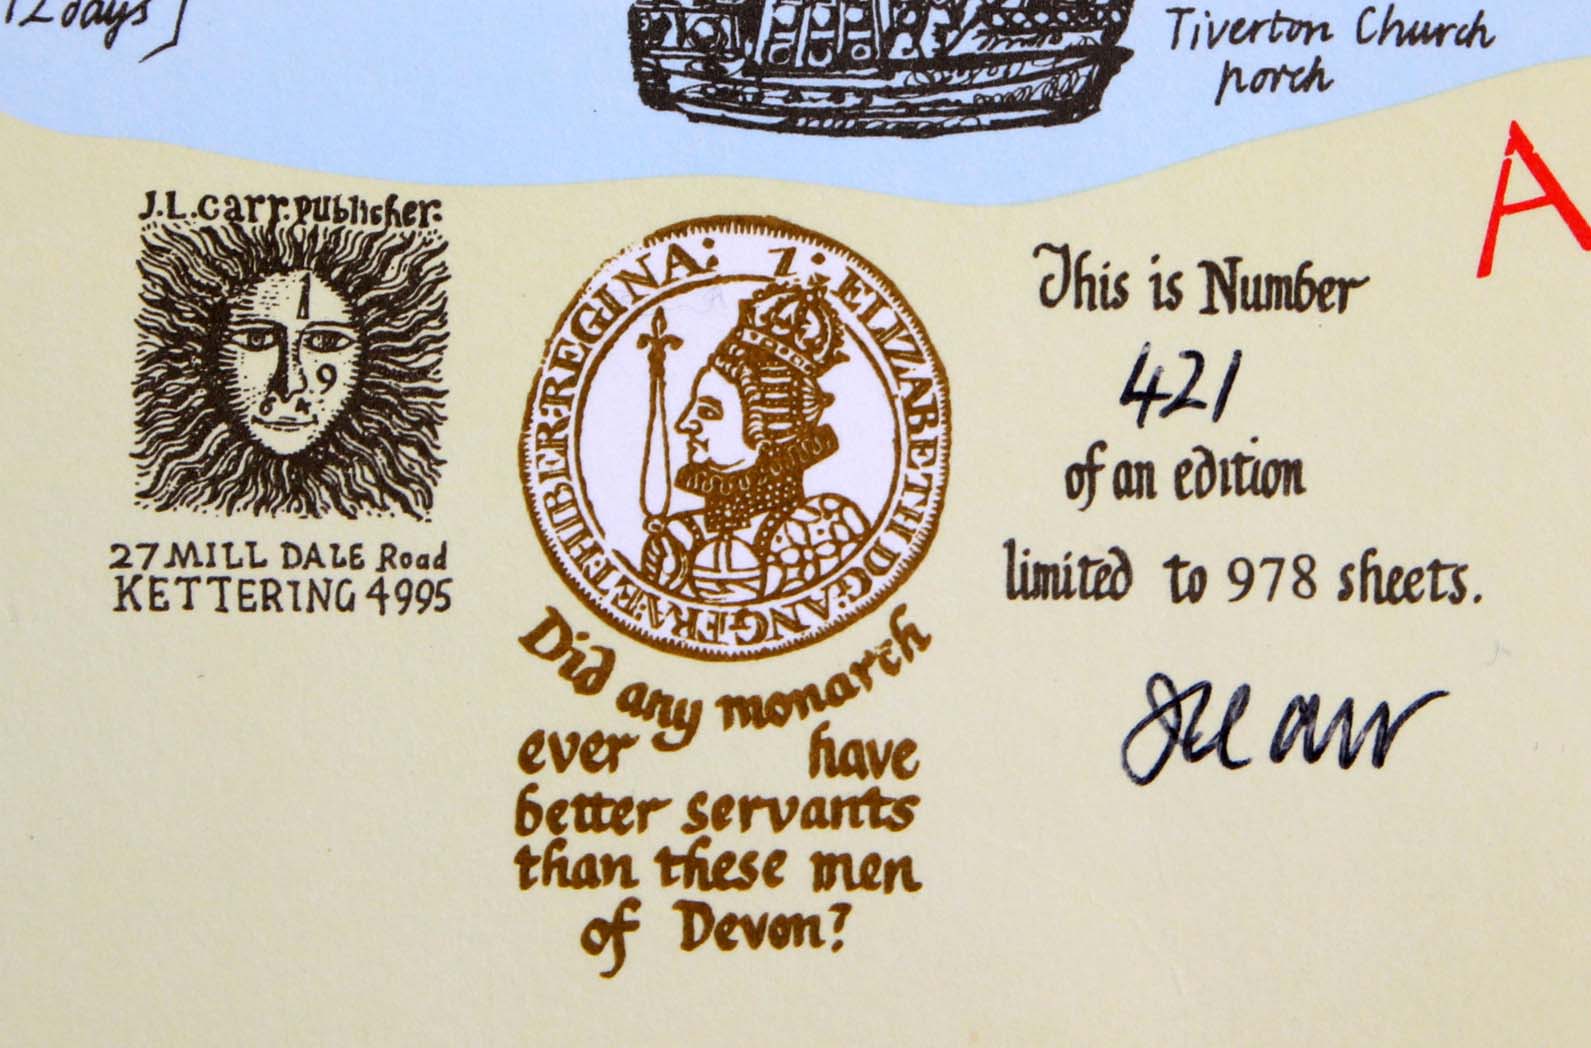 12 days]
Tiverton Church
porch
A
J.L.Carr.Publisher.
1
9
6 4
27 MILL DALE Road
KETTERING 4995
Z · ELIZABETH D.G. ANG: FRA: ET. HIBER: REGINA:
This is Number
421
of an edition
limited to 978 sheets.
JLCarr
Did any monarch
ever have
better servants
than these men
of Devon?